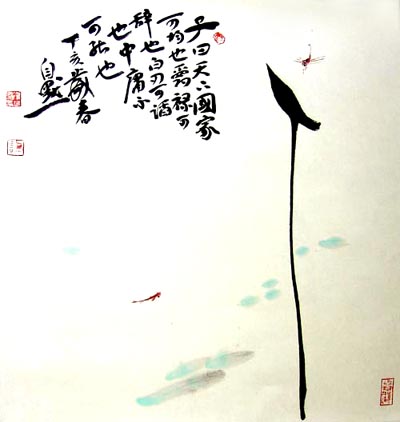 子曰天下國家
可均也爵禄可
辞也白刃可蹈
也中庸不
可能也
丁亥歲春